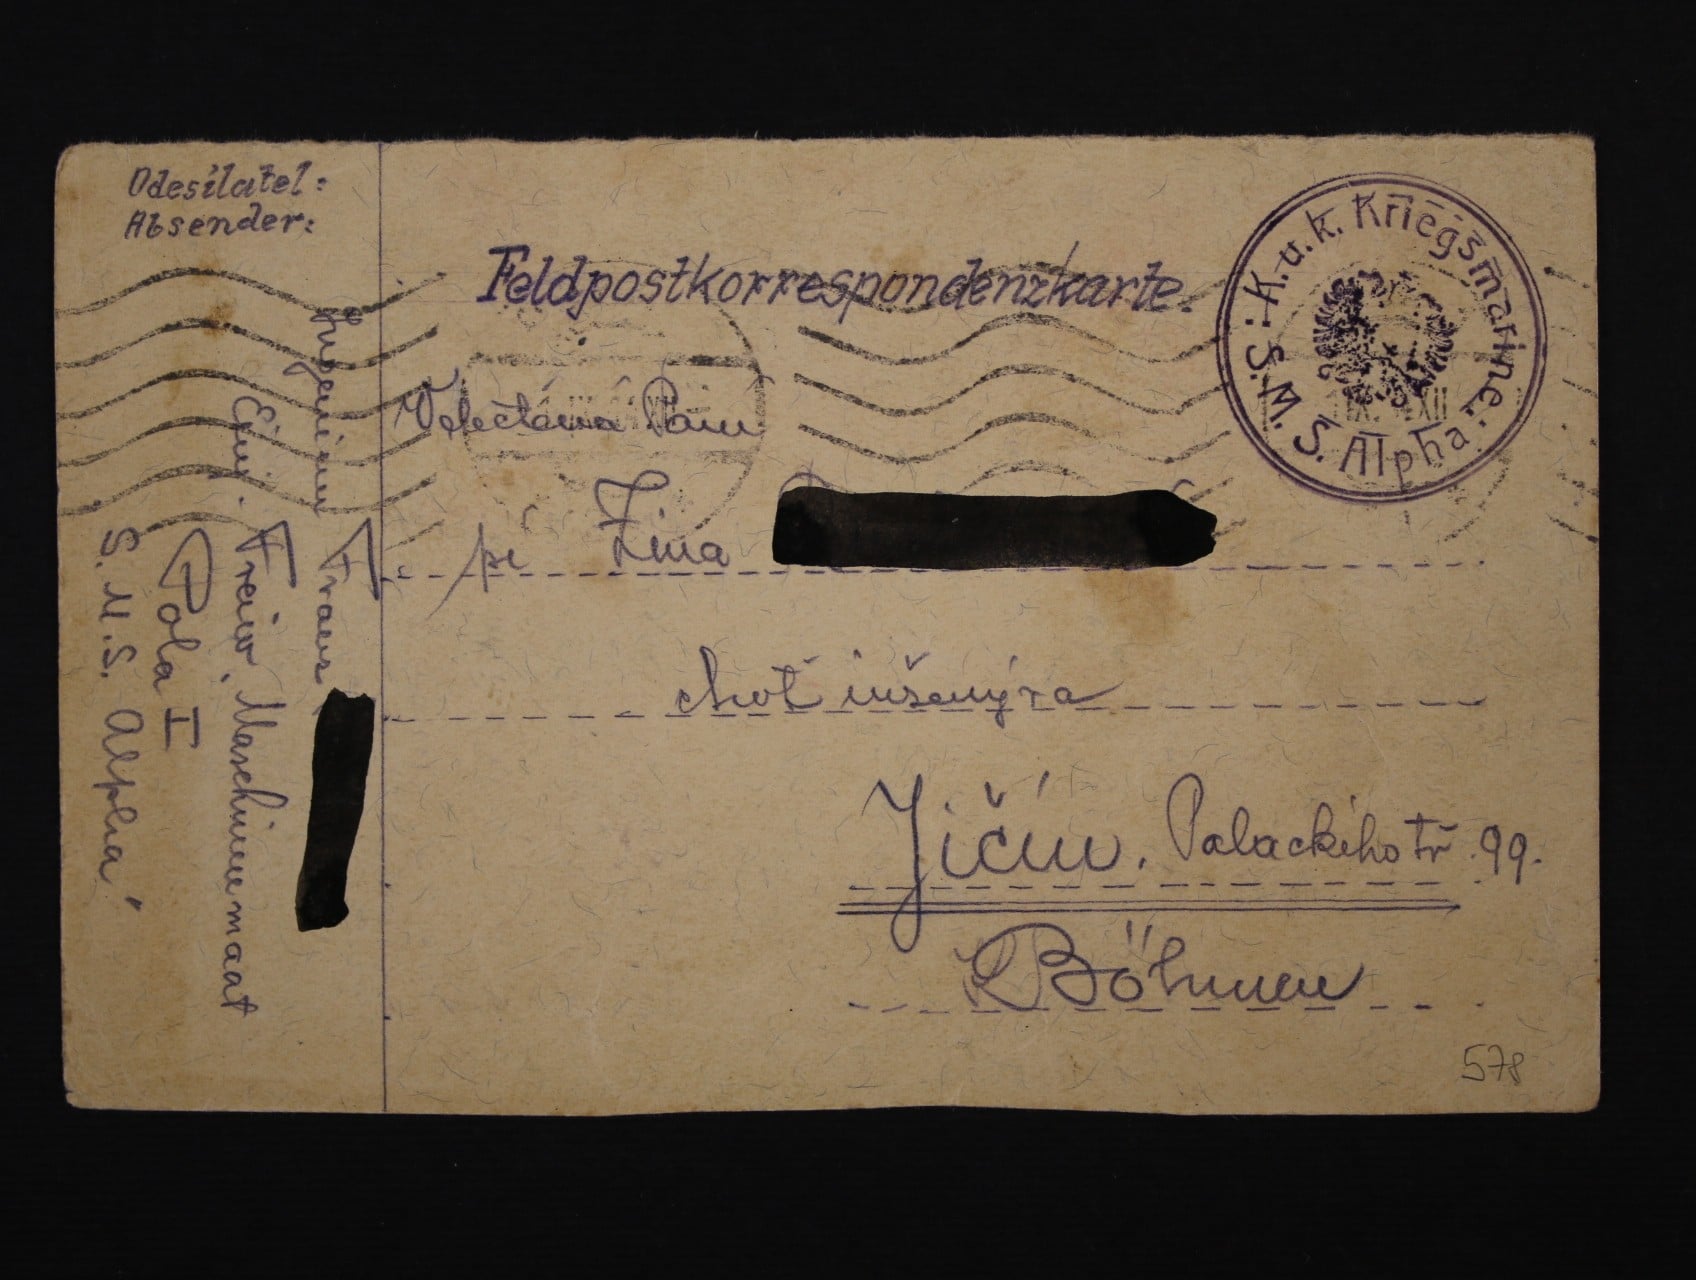 Odesílatel:
Absender:
Ingenieur Franz
Einj. Freiw. Maschinenmaat
Pola I
S.M.S. Alpha
Feldpostkorrespondenzkarte.
K.u.k. Kriegsmarine.
S.M.S. Alpha
XII
Velectěná Paní
pí Zina
choť inženýra
Jičín. Palackého tř. 99.
Böhmen
578